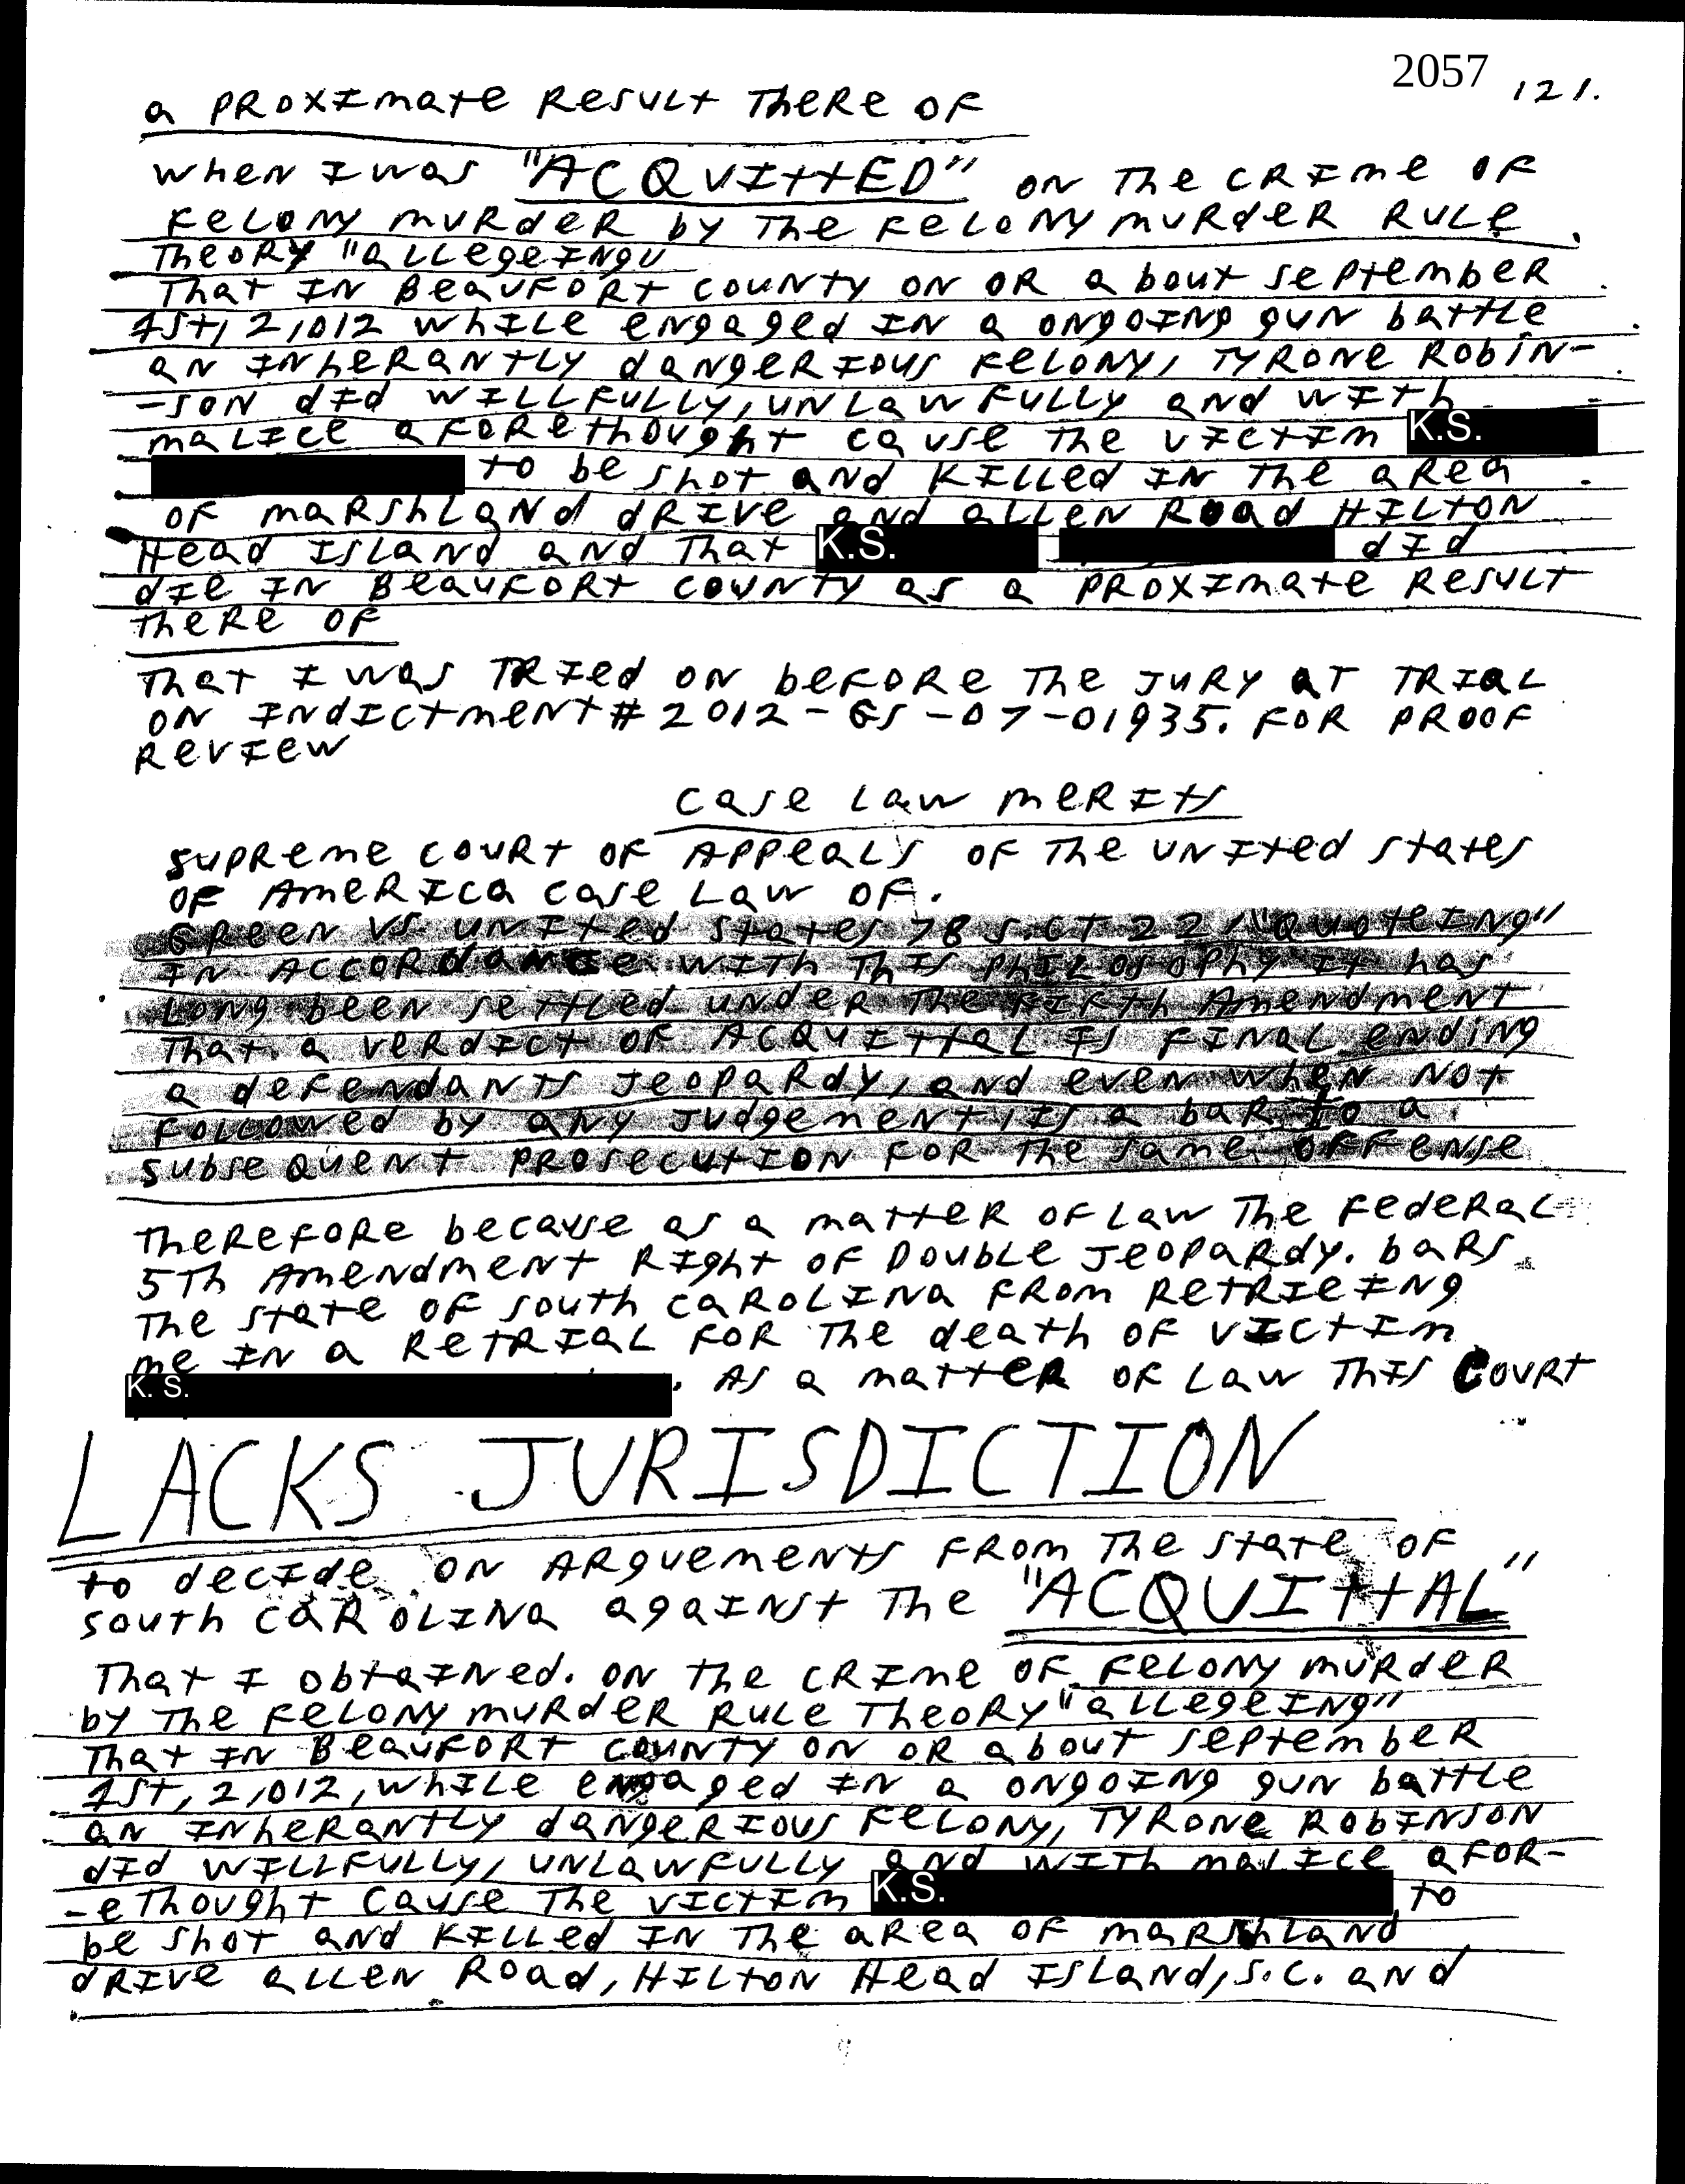 2057 121.
a PROXImate Result There OF
when I was "ACQUITTED" on The CRIme OF
Felony muRdeR by The Felony muRdeR Rule
TheoRy "allegeIng"
That In BeauFoRt county on oR about septembeR
1st, 2,012 whIle engaged In a ongoIng gun battle
an InheRantly dangeRIous Felony, TyRone RobIn-
-son dId wIllFully, unlawFully and wIth
malIce aForethought cause The vIctIm K.S.
to be shot and KIlled In The aRea
oF maRshland dRIve and allen Road HIlton
Head Island and That K.S. dId
dIe In BeauFoRt county as a PRoxImate Result
There oF
That I was TRIed on beFoRe The JuRy at TRIal
on IndIctment # 2012-GS-07-01935. FoR PRooF
RevIew
Case Law meRIts
supReme couRt oF Appeals oF The unIted states
oF AmeRIca case Law oF.
GReen vs. unIted states 78 S.CT 22 "QuoteIng"
In AccoRdance wIth ThIs PhIlosophy It has
Long been settled undeR The FIFth Amendment
That a veRdIct oF AcquIttal Is FInal endIng
a deFendants JeopaRdy, and even when not
Followed by any Judgement, Is a baR to a
subsequent PRosecutIon FoR The same oFFense
TheReFoRe because as a matteR oF Law The FedeRal
5Th Amendment RIght oF Double JeopaRdy. baRs
The state oF south CaRolIna FRom RetRIeIng
me In a RetRIal FoR The death oF vIctIm
K. S. . As a matteR oF Law ThIs CouRt
LACKS JURISDICTION
to decIde on ARguements FRom The state oF
south CaRolIna agaInst The "ACQUITTAL"
That I obtaIned. on the CRIme oF Felony muRdeR
by The Felony muRdeR Rule TheoRy "allegeIng"
That In BeauFoRt county on oR about septembeR
1st, 2,012, whIle engaged In a ongoIng gun battle
an InheRantly dangeRIous Felony, TyRone RobInson
dId wIllFully, unlawFully and wIth malIce aFoR-
-ethought Cause The vIctIm K.S. to
be shot and KIlled In The aRea oF maRshland
dRIve allen Road, HIlton Head Island, S.C. and